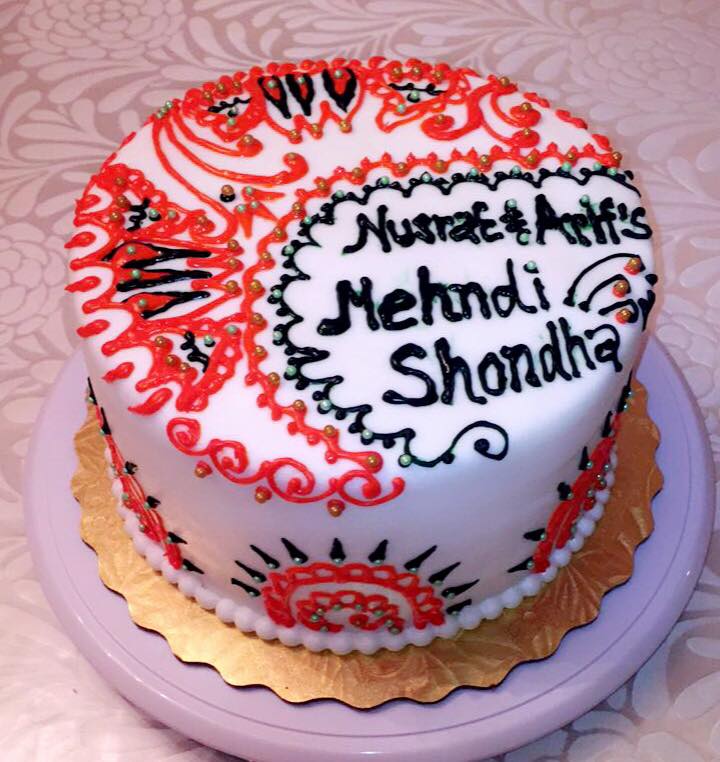 Nusrat & Arif's
Mehndi
Shondha